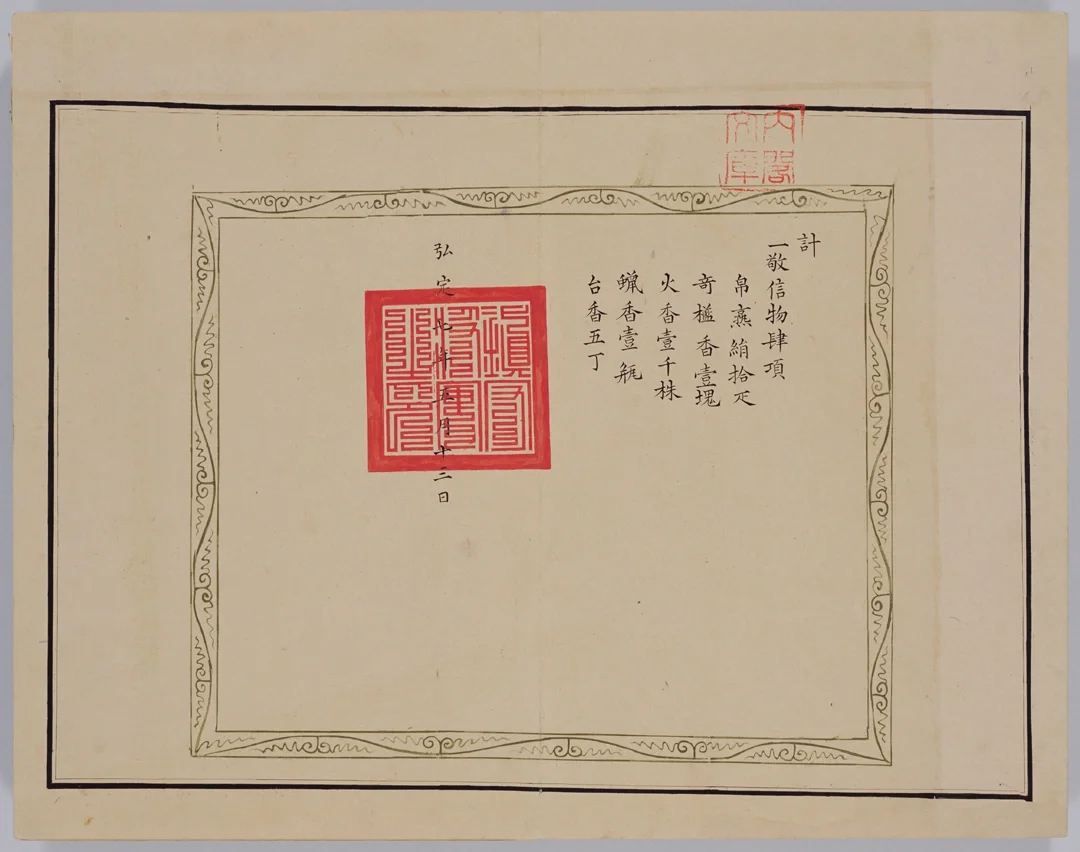 内閣
文庫
計
一敬信物肆項
帛燕絹拾疋
竒 香壹塊
火香壹千株
蝋香壹瓶
台香五丁
弘定七年五月十三日